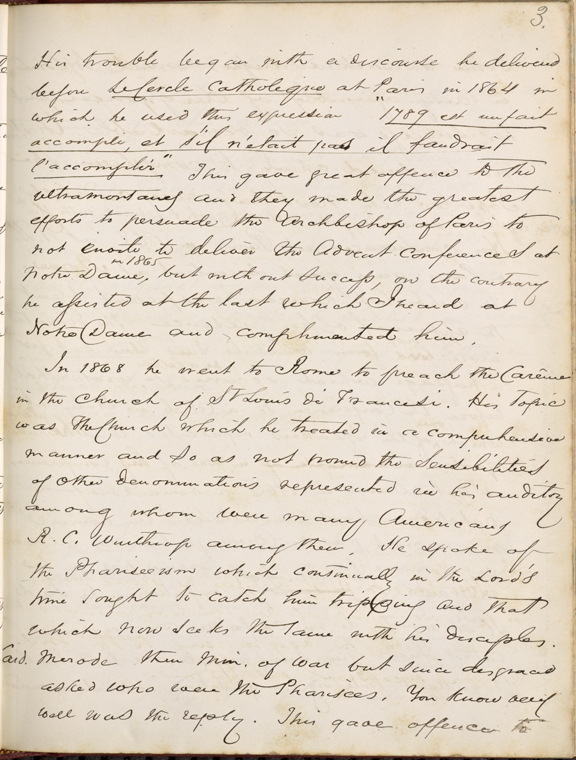 3.
His trouble began with a discourse he delivered
before Le Cercle Catholique at Paris in 1864 in
which he used this expression "1789 est un fait
accompli, et s'il n'etait pas il faudrait
l'accomplir" This gave great offence to the
ultramontanes and they made the greatest
efforts to persuade the Archbishop of Paris to
not invite to deliver the Advent Conferences at
in 1865
Notre Dame, but without success, on the contrary
he assisted at the last which I heard at
Notre Dame and complimented him.
In 1868 he went to Rome to preach the Carême
in the church of St Louis di Francesi. His Topic
was The Church which he treated in a comprehensive
manner and so as not wound the sensibilities
of other denominations represented in his auditory
among whom were many Americans
R. C. Winthrop among them. He spoke of
the Phariseeism which continually in the Lord's
time sought to catch him tripping and that
which now seeks the same with his disciples.
Card. Merode then Min. of War but since disgraced
asked who were the Pharisees. You know very
well was the reply. This gave offence to